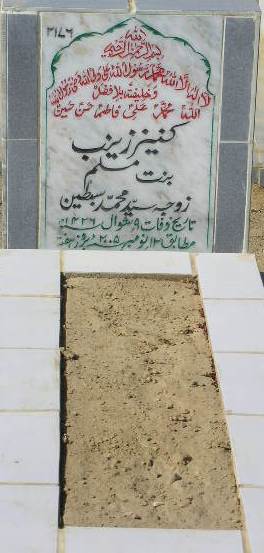 ۳۱۷۶
اللہ
بسم اللہ الرحمن الرحیم
لا الہ الا اللہ محمد رسول اللہ علی ولی اللہ
وخلیفتہ بلا فصل
اللہ محمد علی فاطمہ حسن حسین
کنیز زینب
بنت مسلم
زوجہ سید محمد سبطین
تاریخ وفات ۹ شوال ۱۴۲۶
مطابق ۱۲ نومبر ۲۰۰۵ بروز ہفتہ